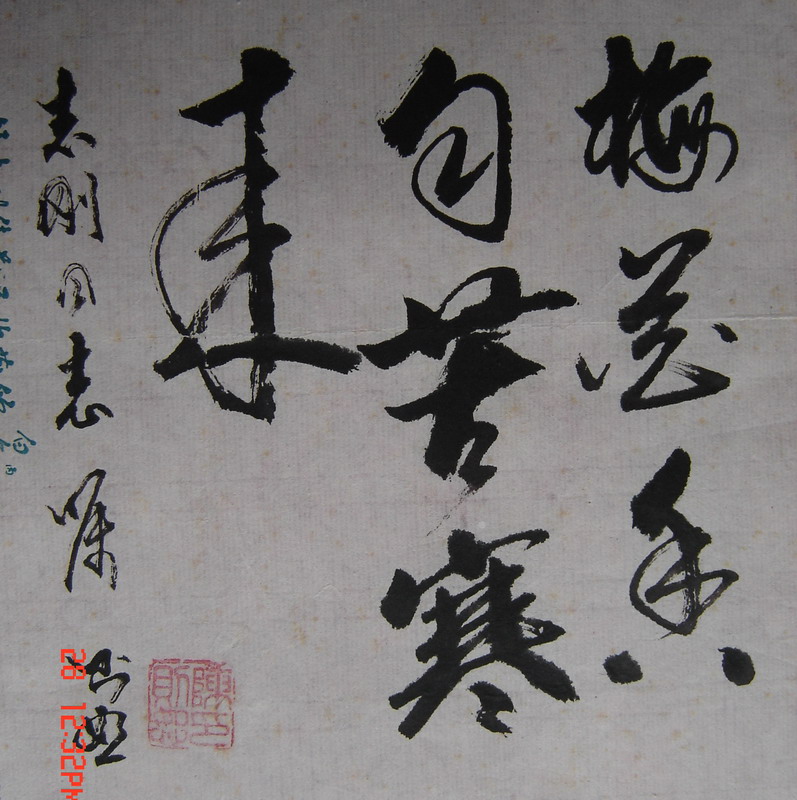 梅花香
自苦寒
来
志刚同志嘱
28 12:32PM